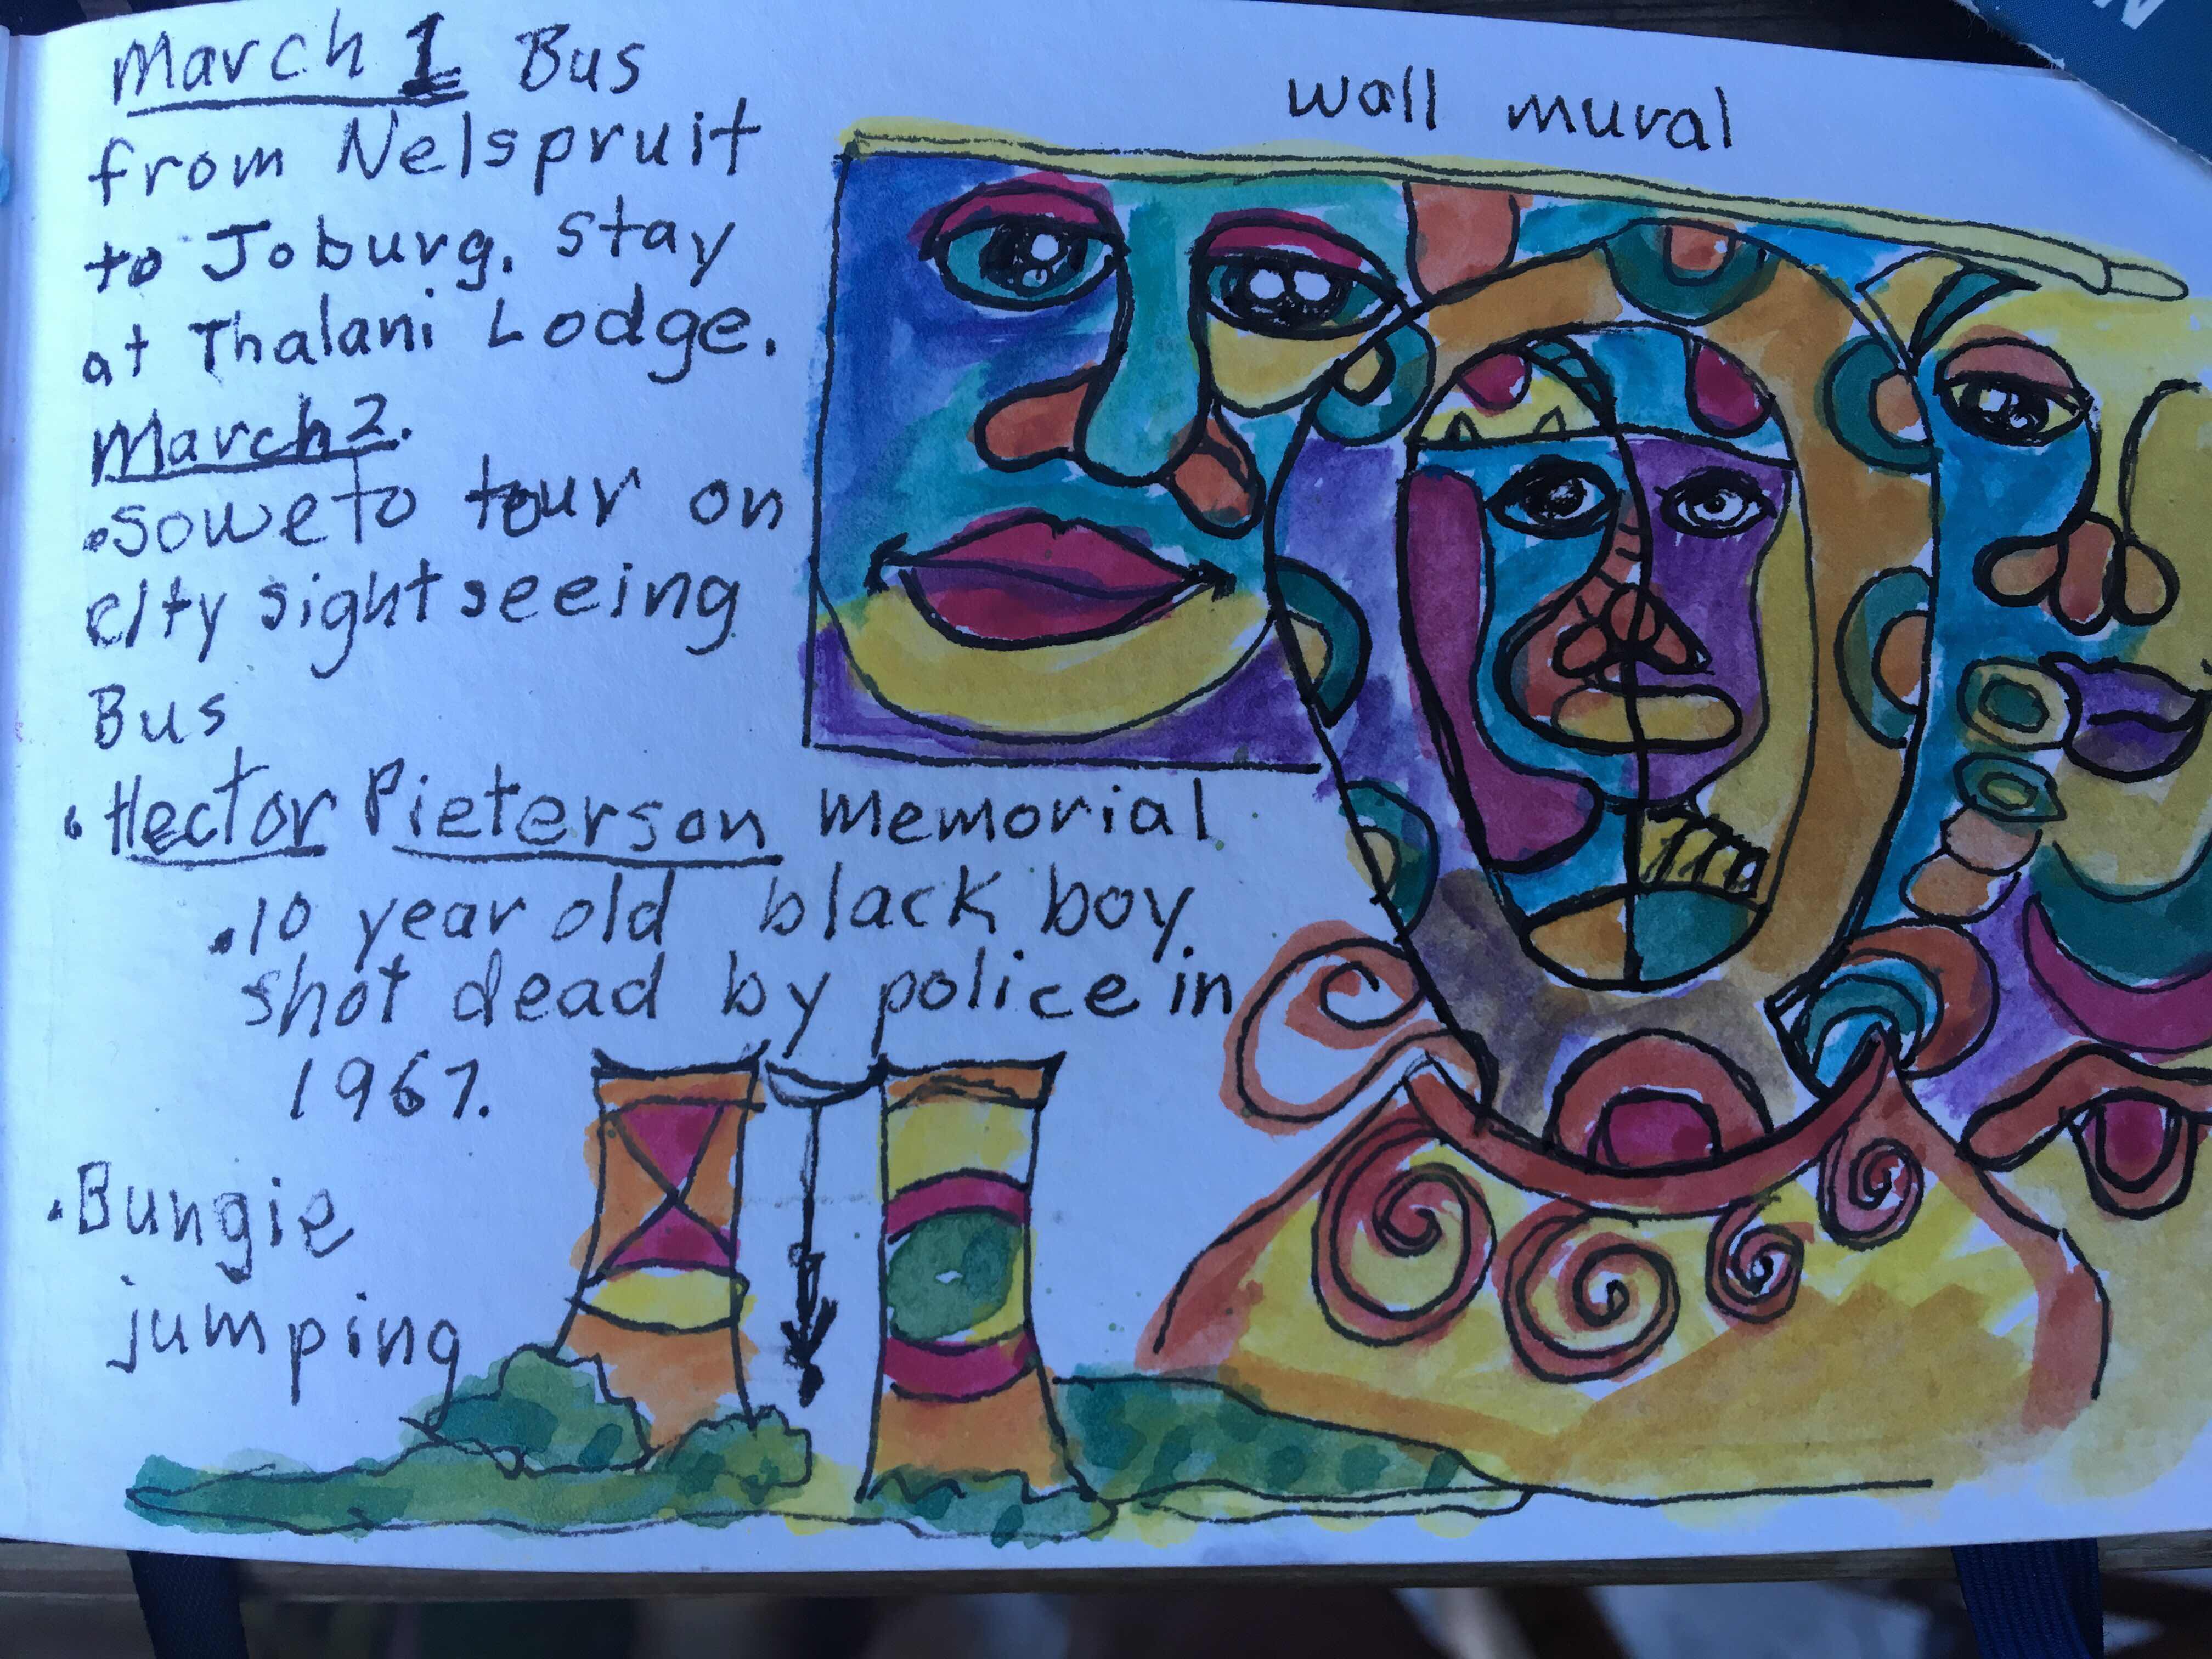 March 1 Bus
from Nelspruit
to Joburg. stay
at Thalani Lodge.
March 2.
• soweto tour on
city sightseeing
Bus
• Hector Pieterson Memorial
• 10 year old black boy
shot dead by police in
1967.
• Bungie
jumping
wall mural
N